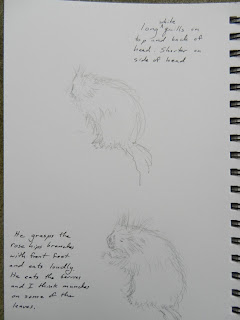 white
long quills on
top and back of
head. Shorter on
side of head
He grasps the
rose hips branches
with front feet
and eats loudly
He eats the berries
and I think munches
on some of the
leaves.